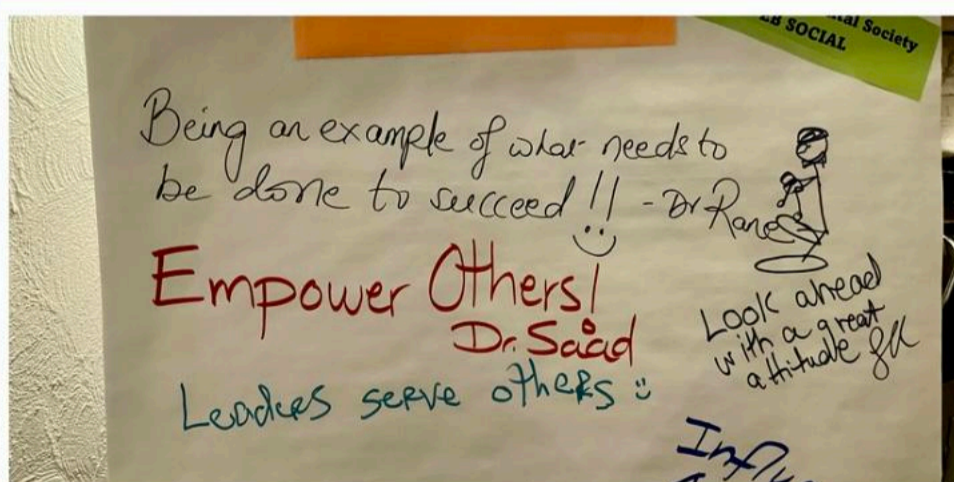 tal Society
EB SOCIAL
Being an example of what needs to
be done to succeed!! - Dr Rane
Empower Others!
Dr. Saad
Look ahead
with a great
attitude
Leaders serve others
Influ